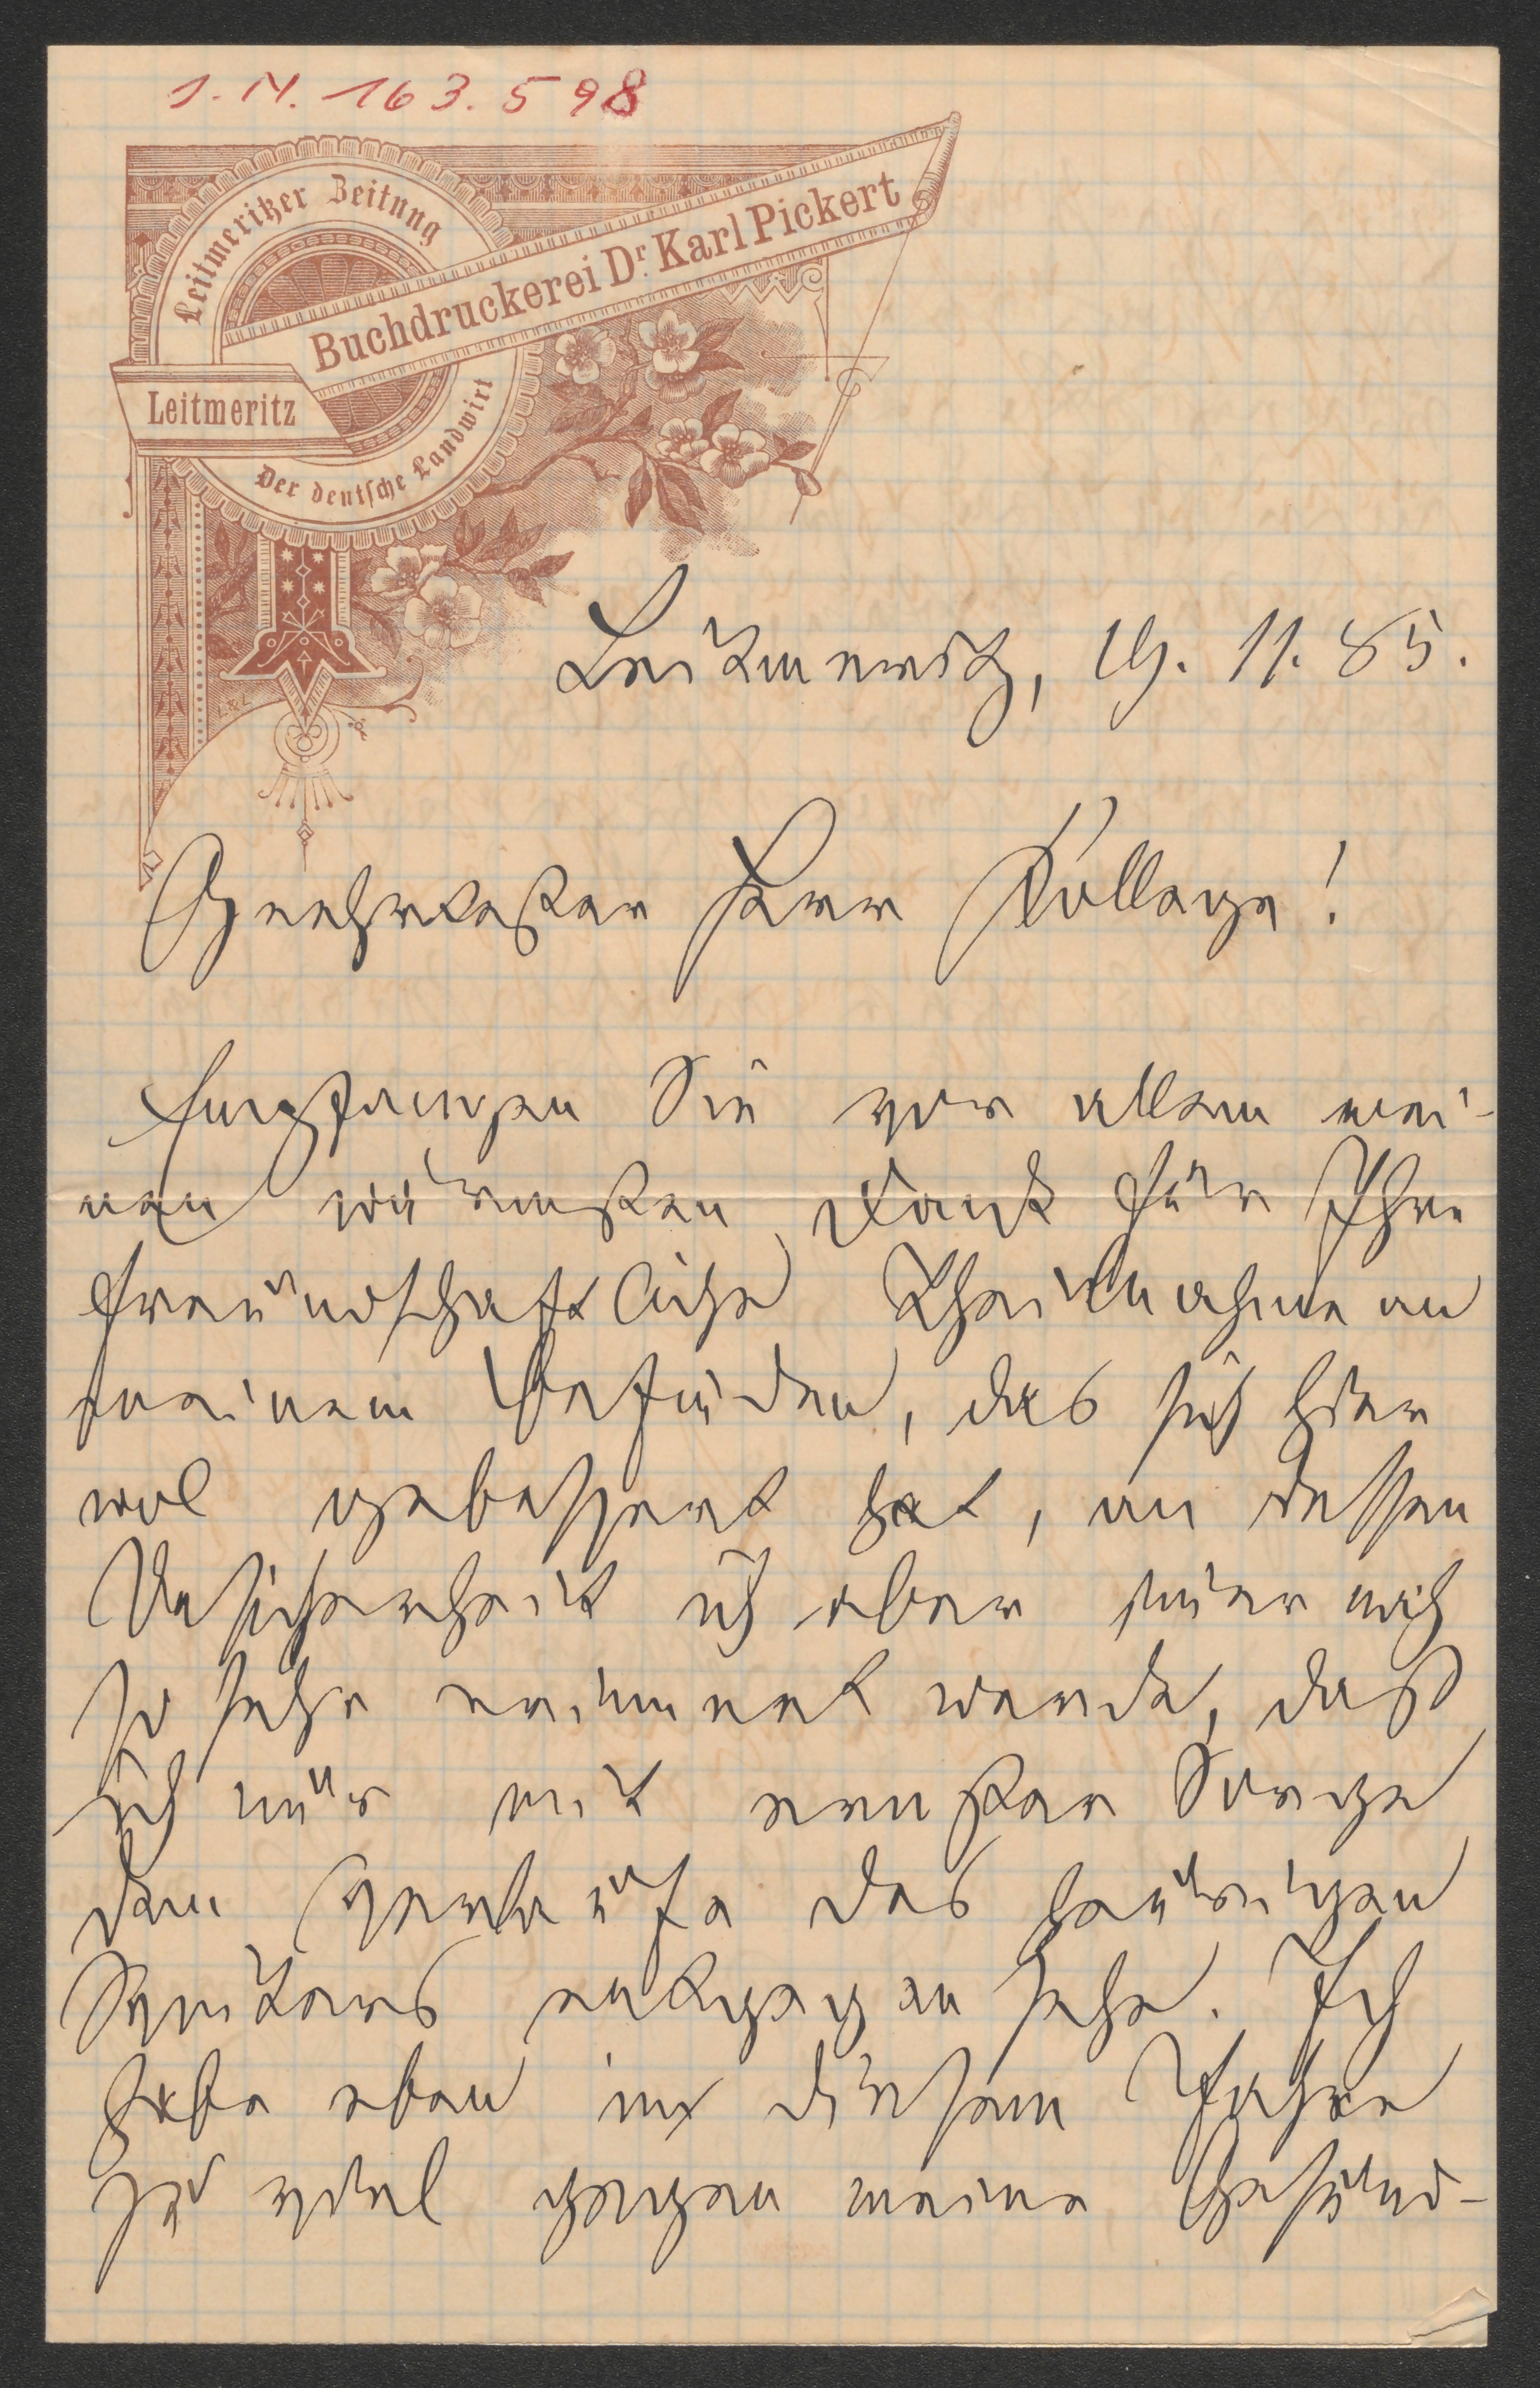 I. N. 163.598
Leitmeritzer Zeitung
Buchdruckerei Dr. Karl Pickert
Leitmeritz
Der deutsche Landwirt
L&L
Leitmeritz, 19. 11. 85.
Geehrtester Herr Kollege!
Empfangen Sie vor allem mei-
nen wärmsten Dank für Ihre
freundschaftliche Theilnahme an
meinem Befinden, das sich hier
wol gebessert hat, an dessen
Unsicherheit ich aber immer noch
so sehr erinnert werde, daß
ich nur mit ernster Sorge
dem Verlaufe des heurigen
Winters entgegen sehe. Ich
habe eben in diesem Jahre
zu viel gegen meine Gesund-